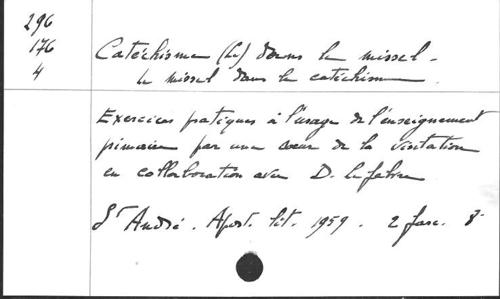 296
176
4
Catéchisme (Le) dans le missel -
le missel dans le catéchisme
Exercices pratiques à l'usage de l'enseignement
primaire par une soeur de la visitation
en collaboration avec D. Lefebvre
St André. Apost. lit. 1959. 2 fasc. 8°